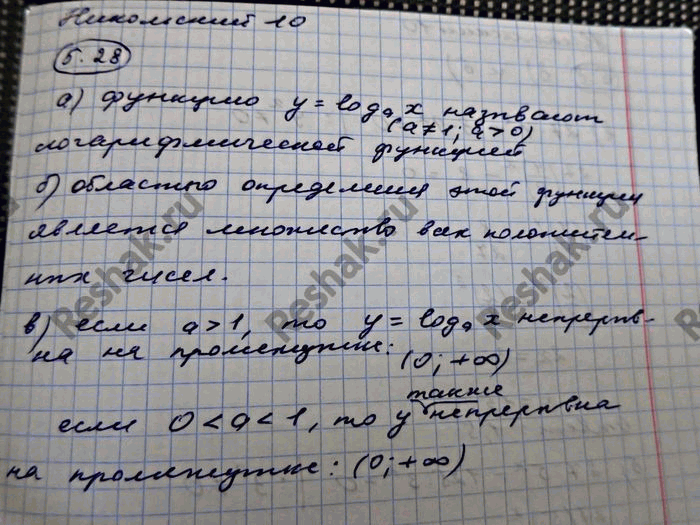 Никольский 10
5.28
а) функцию y = logₐ x называют
(a≠1; a>0)
логарифмической функцией
б) областью определения этой функции
является множество всех положитель-
ных чисел.
в) если a>1, то y = logₐ x непрерыв-
на на промежутке: (0; +∞)
также
если 0<a<1, то y непрерывна
на промежутке: (0; +∞)
Reshak.ru
Reshak.ru
Reshak.ru
Reshak.ru